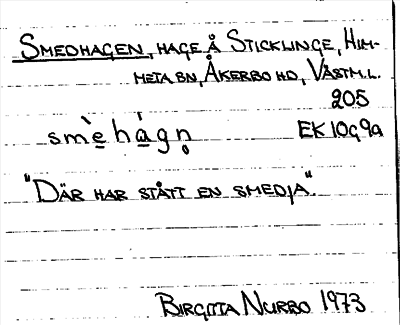 SMEDHAGEN, HAGE Å STICKLINGE, HIM-
META SN, ÅKERBO HD, VÄSTM.L.
205
smè̲há̲gn̥ EK 10g9a
"DÄR HAR STÅTT EN SMEDJA".
BIRGITTA NURBO 1973